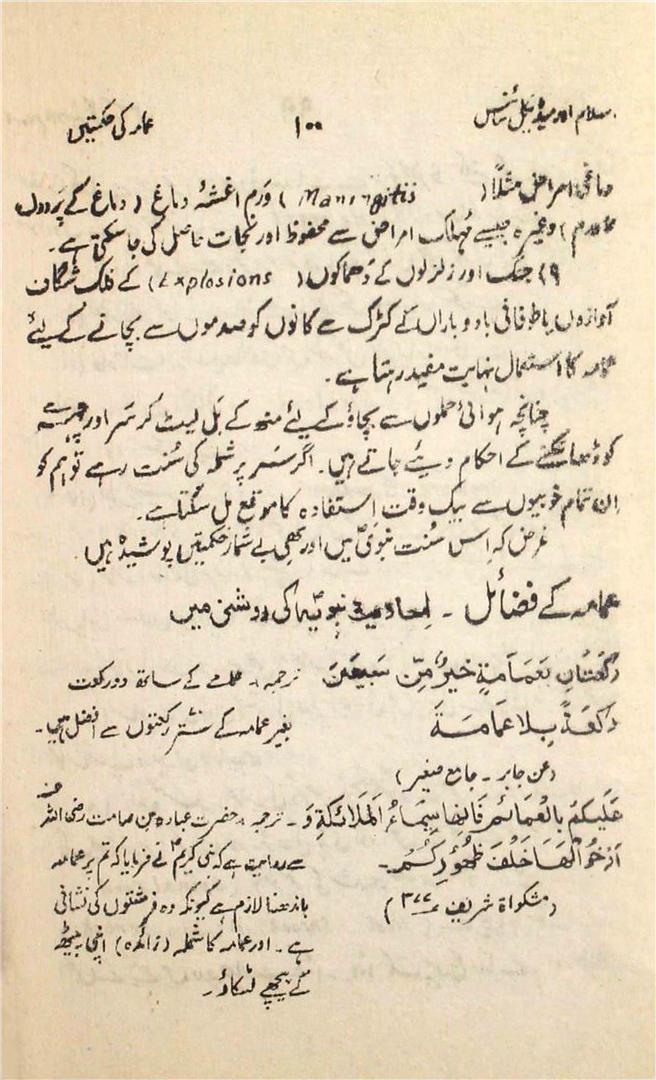 اسلام اور میڈیکل سائنس ۱۰۰ عمامہ کی حکمتیں
دماغی امراض مثلاً ( Maningitis ) وَرم اغشۂ دماغ ( دماغ کے پَردوں
کا ورم ) وغیرہ جیسے مُہلک امراض سے محفوظ اور نجات حاصل کی جا سکتی ہے۔
۹) جنگ اور زلزلوں کے دَھماکوں ( Explosions ) کے فلک شگاف
آوازوں یا طوفانی باد و باراں کے کڑک سے کانوں کو صدموں سے بچانے کے لیئے
عمامہ کا استعمال نہایت مفید رہتا ہے۔
چنانچہ ہوائی حملوں سے بچاؤ کے لیئے منھ کے بَل لیٹ کر سَر اور چہرے
کو ڈھانکنے کے احکام دیئے جاتے ہیں۔ اگر سَر پر شملہ کی سُنت رہے تو ہم کو
اِن تمام خوبیوں سے بیک وقت اِستفادہ کا موقع مل سکتا ہے۔
غرض کہ اِس سُنت نبویؐ میں اور بھی بے شمار حکمتیں پوشیدہ ہیں۔
عمامہ کے فضائل ۔ احادیث نبویہ کی روشنی میں
رکعتانِ بعَمَامَةٍ خیرٌ مِّن سَبعینَ
رکعَةً بِلا عَمامَةَ
(عن جابر ۔ جامع صغیر)
ترجمہ :۔ عمامے کے ساتھ دو رکعت
بغیر عمامہ کے ستّر رکعتوں سے افضل ہیں۔
عَلَیکم بالعَمائم فَاِنها سِیمَاءُ المَلائکةِ وَ ۔
اَرخُوا لَهَا خَلْفَ ظهُورِکُم ۔
(مشکواة شریف ص ۳۷۷)
ترجمہ :۔ حضرت عبادہ بن صامت رضی اللہ عنہ
سے روایت ہے کہ نبی کریمؐ نے فرمایا کہ تم پر عمامہ
باندھنا لازم ہے کیونکہ وہ فرشتوں کی نشانی
ہے۔ اور عمامہ کا شملہ (زائدہ) اپنی پیٹھ
کے پیچھے لٹکاؤ۔